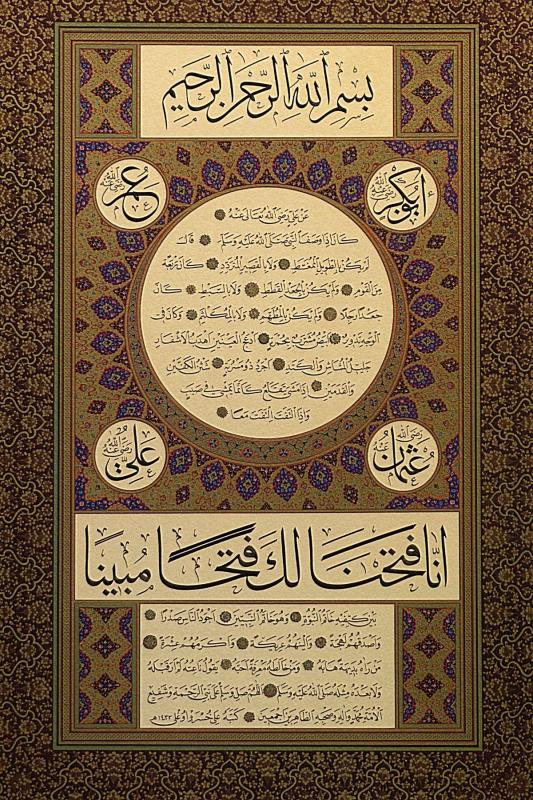 بسم الله الرحمن الرحيم
ابو بكر رضي الله عنه
عمر رضي الله عنه
عن علي رضي الله تعالى عنه
كان اذا وصف النبي صلى الله عليه وسلم قال
لم يكن بالطويل الممغط ولا بالقصير المتردد كان ربعة
من القوم ولم يكن بالجعد القطط ولا بالسبط كان
جعدا رجلا ولم يكن بالمطهم ولا بالمكلثم وكان في
الوجه تدوير ابيض مشرب بحمرة ادعج العينين اهدب الاشفار
جليل المشاش والكتد اجرد ذو مسربة شثن الكفين
والقدمين اذا مشى تقلع كانما يمشي في صبب
واذا التفت التفت معا
عثمان رضي الله عنه
علي رضي الله عنه
انا فتحنا لك فتحا مبينا
بين كتفيه خاتم النبوة وهو خاتم النبيين اجود الناس صدرا
واصدقهم لهجة والينهم عريكة واكرمهم عشرة
من رآه بديهة هابه ومن خالطه معرفة احبه يقول ناعته لم ار قبله
ولا بعده مثله صلى الله عليه وسلم اللهم صل وسلم على نبي الرحمة وشفيع
الامة محمد وآله وصحبه الطاهرين اجمعين كتبه علي خسرو اوغلى